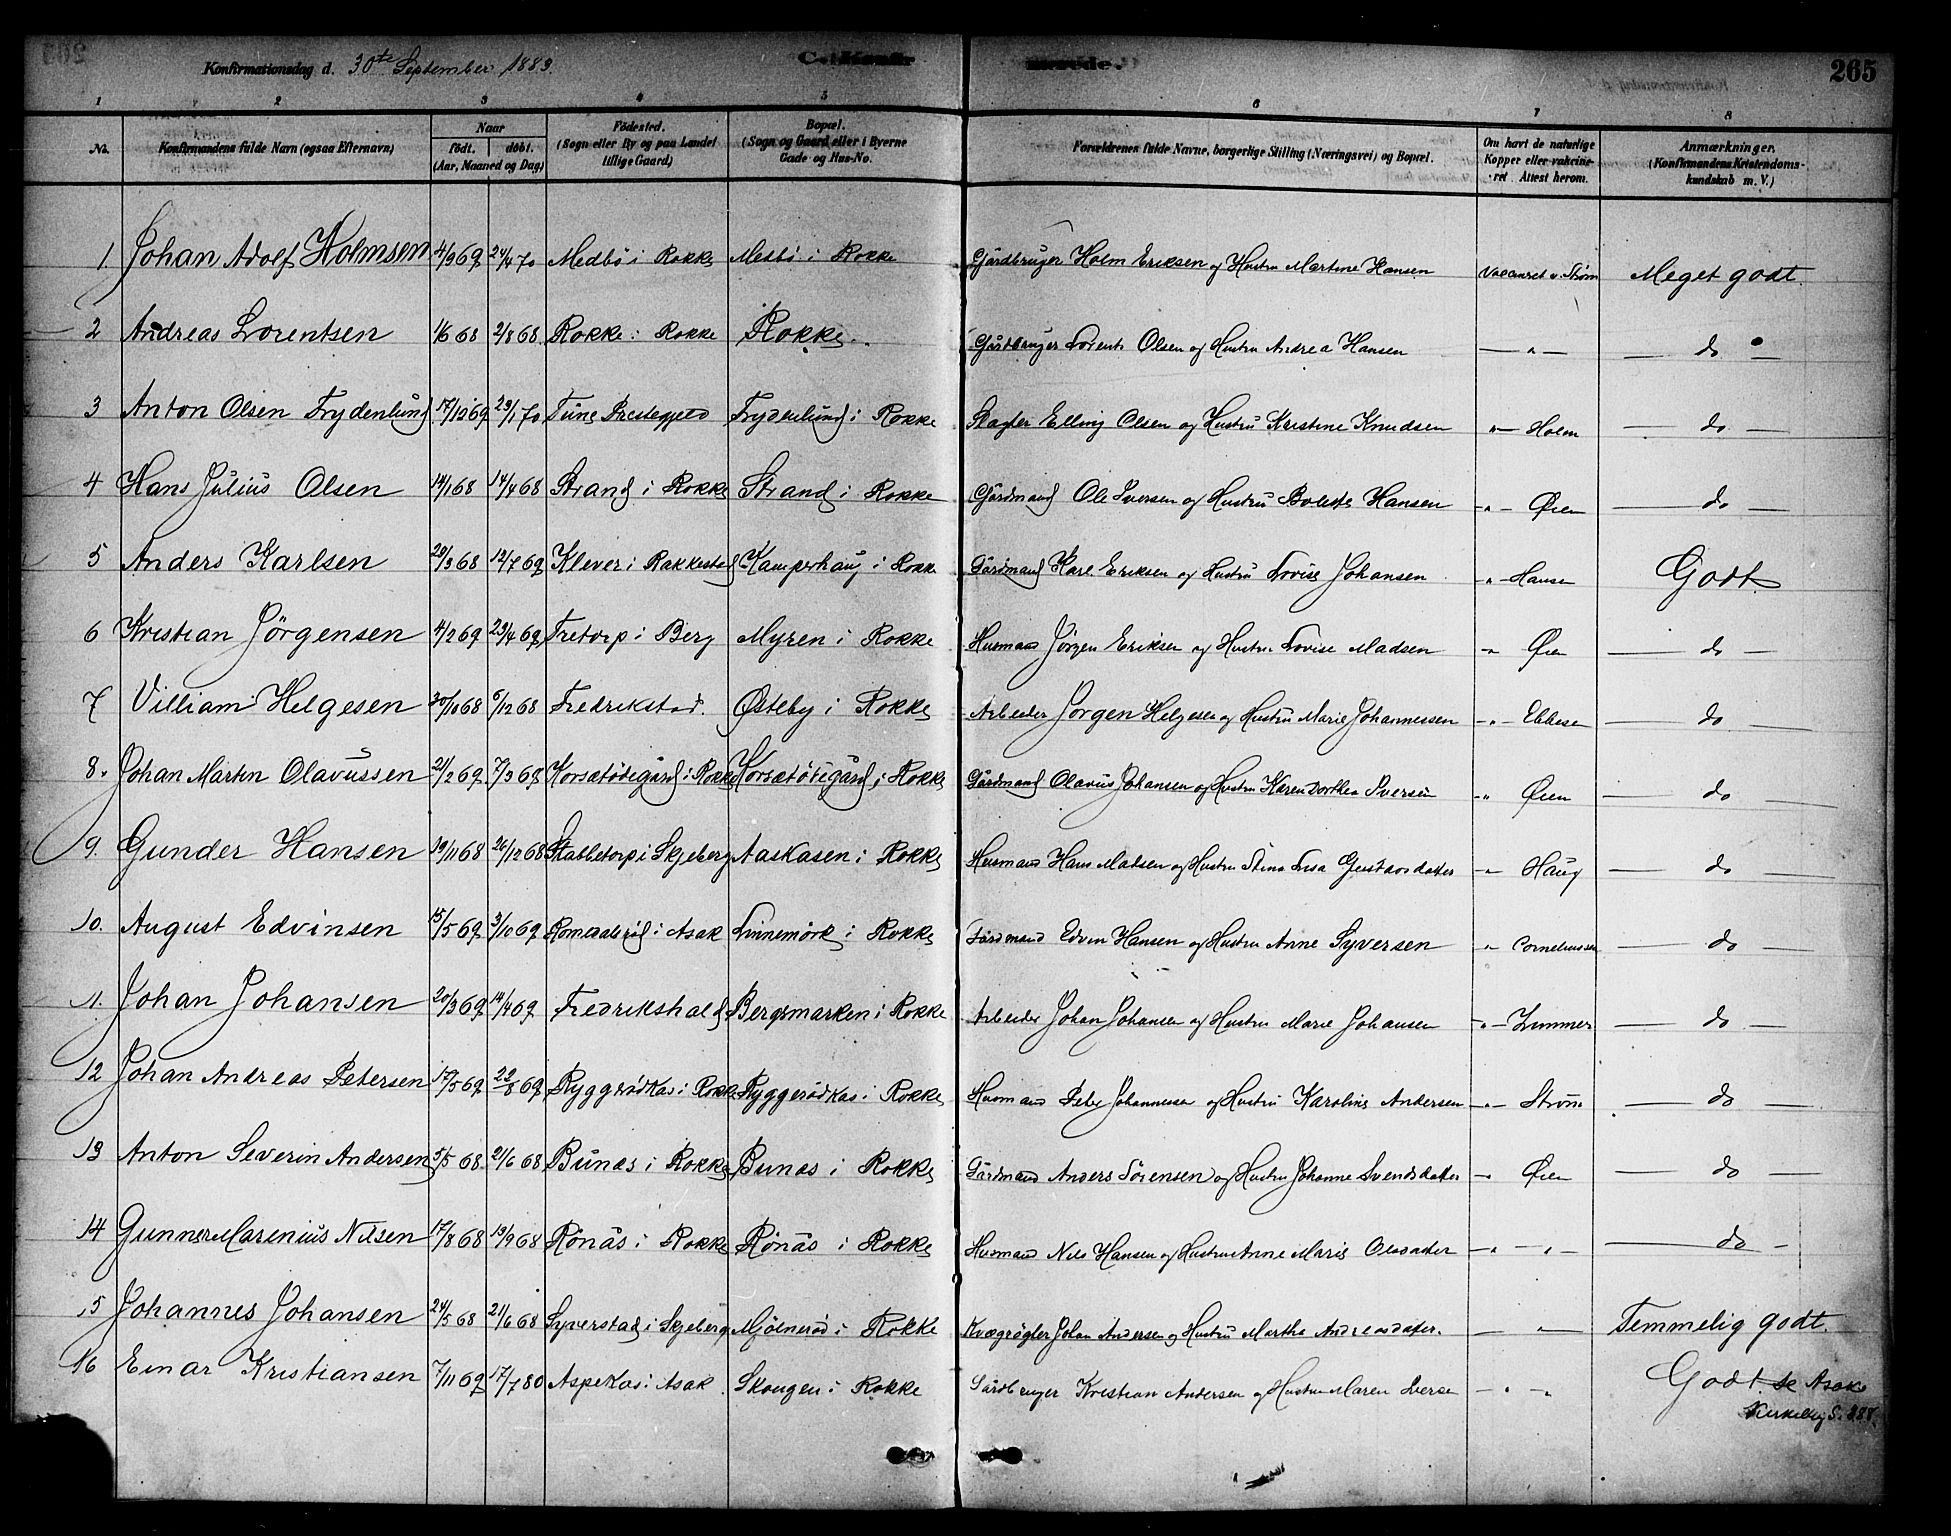 Konfirmationsdag d. 30te September 1883.
C. Konfirmerede.
265
1 2 3 4 5 6 7 8
No. Konfirmandens fulde Navn (ogsaa Efternavn) Naar født. døbt. (Aar, Maaned og Dag) Fødested. (Sogn eller By og paa Landet tillige Gaard) Bopæl. (Sogn og Gaard eller i Byerne Gade og Hus-No. Forældrenes fulde Navne, borgerlige Stilling (Næringsvei) og Bopæl. Om havt de naturlige Kopper eller vaksineret. Attest herom. Anmærkninger. (Konfirmandens Kristendomskundskab m. V.)
1. Johan Adolf Holmsen 4/9 69 24/4 70 Medbö i Rokke Medbö i Rokke Gårdbruger Holm Eriksen og Hustru Martine Hansen Vaccineret v. Strøm Meget godt.
2 Andreas Lorentsen 1/6 68 2/8 68 Rokke i Rokke Rokke Gårdbruger Lorents Olsen og Hustru Andrea Hansen — „ — — do —
3 Anton Olsen Frydenlund 17/12 69 23/1 70 Tune Præstegjeld Frydenlund i Rokke Elling Olsen og Hustru Kristine Knudsen „— Holm — do —
4 Hans Julius Olsen 14/1 68 14/4 68 Strand i Rokke Strand i Rokke Gårdmand Ole Iversen og Hustru Bolette Hansen -„- Øien — do —
5 Anders Karlsen 20/3 68 12/7 69 Klever i Rakkestad Kamperhaug i Rokke Gårdmand Karl Eriksen og Hustru Lovise Johansen „- Hansen Godt
6 Kristian Jörgensen 4/2 69 23/4 69 Tretorp i Berg Myren i Rokke Husmand Jörgen Eriksen og Hustru Lovise Madsen „ Øien — do —
7 Villiam Helgesen 30/10 68 6/12 68 Fredrikstad. Østeby i Rokke Arbeider Jörgen Helgesen og Hustru Marie Johannessen -„- Ebbesen — do —
8. Johan Martin Olavussen 21/2 69 7/3 69 Korsetödegård i Rokke Korsetödegård i Rokke Gårdmand Olavus Johansen og Hustru Karen Dorthea Iversen -„ Øien — do —
9. Gunder Hansen 19/11 68 26/12 68 Stabletorp i Skjeberg Aaskasen i Rokke Husmand Hans Madsen og Hustru Stina Lisa Gustavsdatter -„ Haug — do —
10. August Edvinsen 15/5 69 3/10 69 i Asak Linnemörk i Rokke Gårdmand Edvin Hansen og Hustru Anne Syversen „ Corneliussen — do —
11. Johan Johansen 20/3 69 14/4 69 Fredrikshald Bergsmarken i Rokke Arbeider Johan Johansen og Hustru Marie Johansen -„- Zimmer — do —
12 Johan Andreas Petersen 17/5 69 22/8 69 Ryggrödkas i Rokke Ryggerödkas i Rokke Husmand Peter Johannessen og Hustru Karoline Andersen -„- Strøm — do —
13 Anton Severin Andersen 5/5 68 21/6 68 Bunæs i Rokke Bunæs i Rokke Gårdmand Anders Sörensen og Hustru Johanne Svendsdatter -„ Øien — do —
14 Gunner Marenius Nilsen 17/8 68 13/9 68 Rönås i Rokke Rönås i Rokke Husmand Nils Hansen og Hustru Anne Marie Olsdatter -„ - „- — do -
15 Johannes Johansen 24/5 68 21/6 68 Syverstad i Skjeberg Mjölneröd i Rokke Kvægrögter Johan Andersen og Hustru Martha Andreasdatter. — „ Temmelig godt.
16 Einar Kristiansen 7/11 69 17/7 80 Aspekas i Asak Skougen i Rokke Gårdbruger Kristian Andersen og Hustru Maren Iversen - „ „ Godt. se Asak
Kirkebog S.